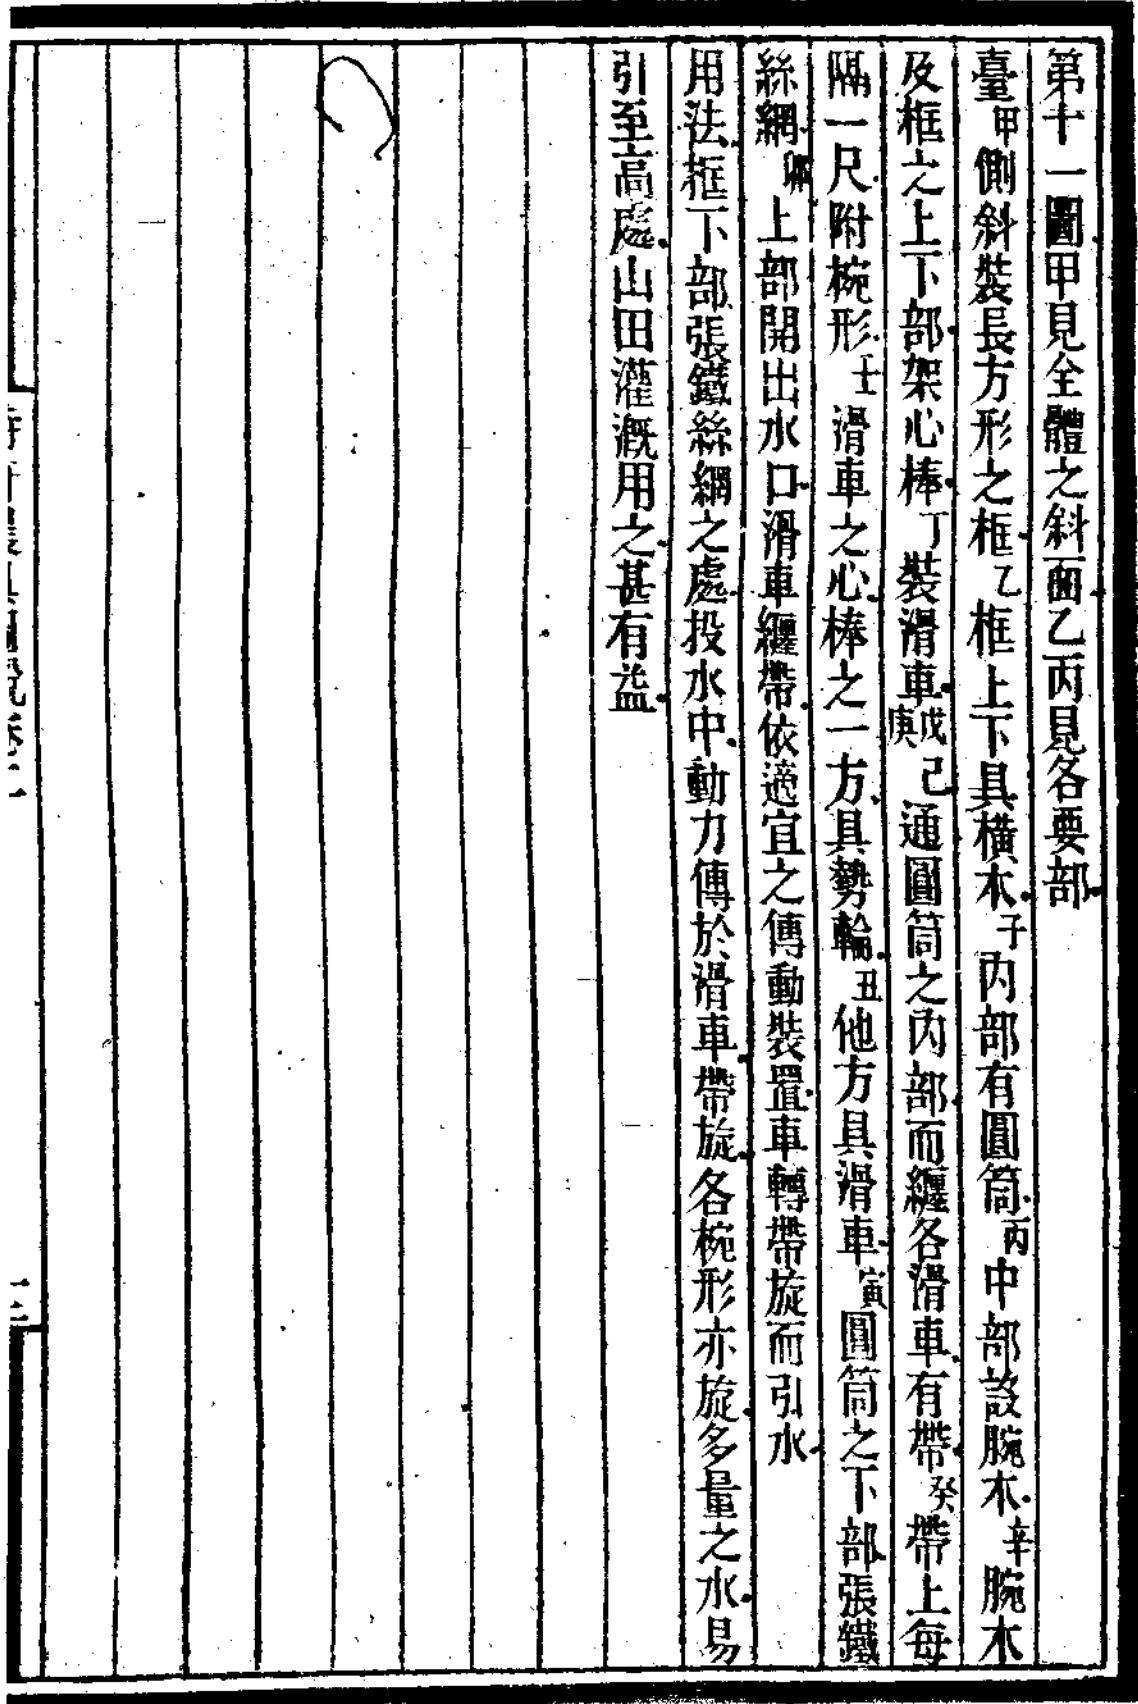 第十一圖甲見全體之斜面乙丙見各要部
臺甲側斜裝長方形之框乙框上下具橫木子內部有圓筒丙中部設腕木辛腕木
及框之上下部架心棒丁裝滑車戊己庚通圓筒之內部而纏各滑車有帶癸帶上每
隔一尺附椀形壬滑車之心棒之一方具勢輪丑他方具滑車寅圓筒之下部張鐵
絲網卯上部開出水口滑車纏帶依適宜之傳動裝置車轉帶旋而引水
用法框下部張鐵絲網之處投水中動力傳於滑車帶旋各椀形亦旋多量之水易
引至高處山田灌溉用之甚有益